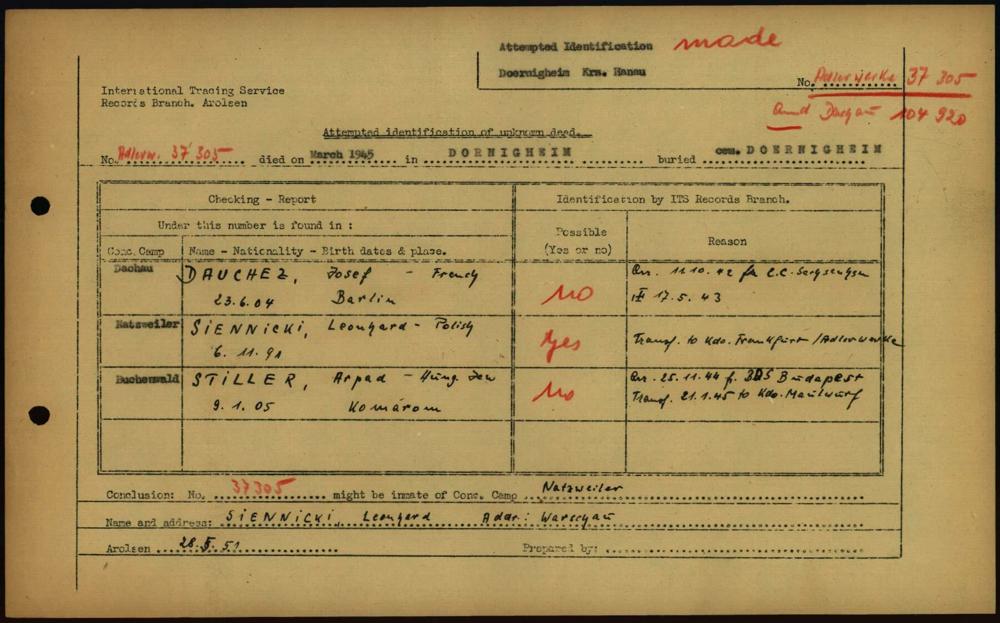 Attempted Identification made
Doernigheim Krs. Hanau
No. Adlerwerke 37 305
and Dachau 104 920
International Tracing Service
Records Branch. Arolsen
Attempted identification of unknown dead.
No. Adlerw. 37 305 died on March 1945 in DORNIGHEIM buried cem. DOERNIGHEIM
Checking - Report
Identification by ITS Records Branch.
Under this number is found in :
Possible
(Yes or no)
Reason
Conc. Camp Name - Nationality - Birth dates & place.
Dachau DAUCHEZ, Josef - French
23.6.04 Berlin
no
Arr. 11.10.42 fr C.C. Sachsenhsn
17.5.43
Natzweiler SIENNICKI, Leonhard - Polish
6. 11. 91
Yes
Transf. to Kdo. Frankfurt /Adlerwerke
Buchenwald STILLER, Arpad - Hung. Jew
9.1.05 Komárom
No
Arr. 25.11.44 f. Budapest
Transf. 21.1.45 to Kdo. Maulwurf
Conclusion: No. 37305 might be inmate of Conc. Camp Natzweiler
Name and address: SIENNICKI, Leonhard Addr: Warschau
Arolsen 28.5.51 Prepared by: